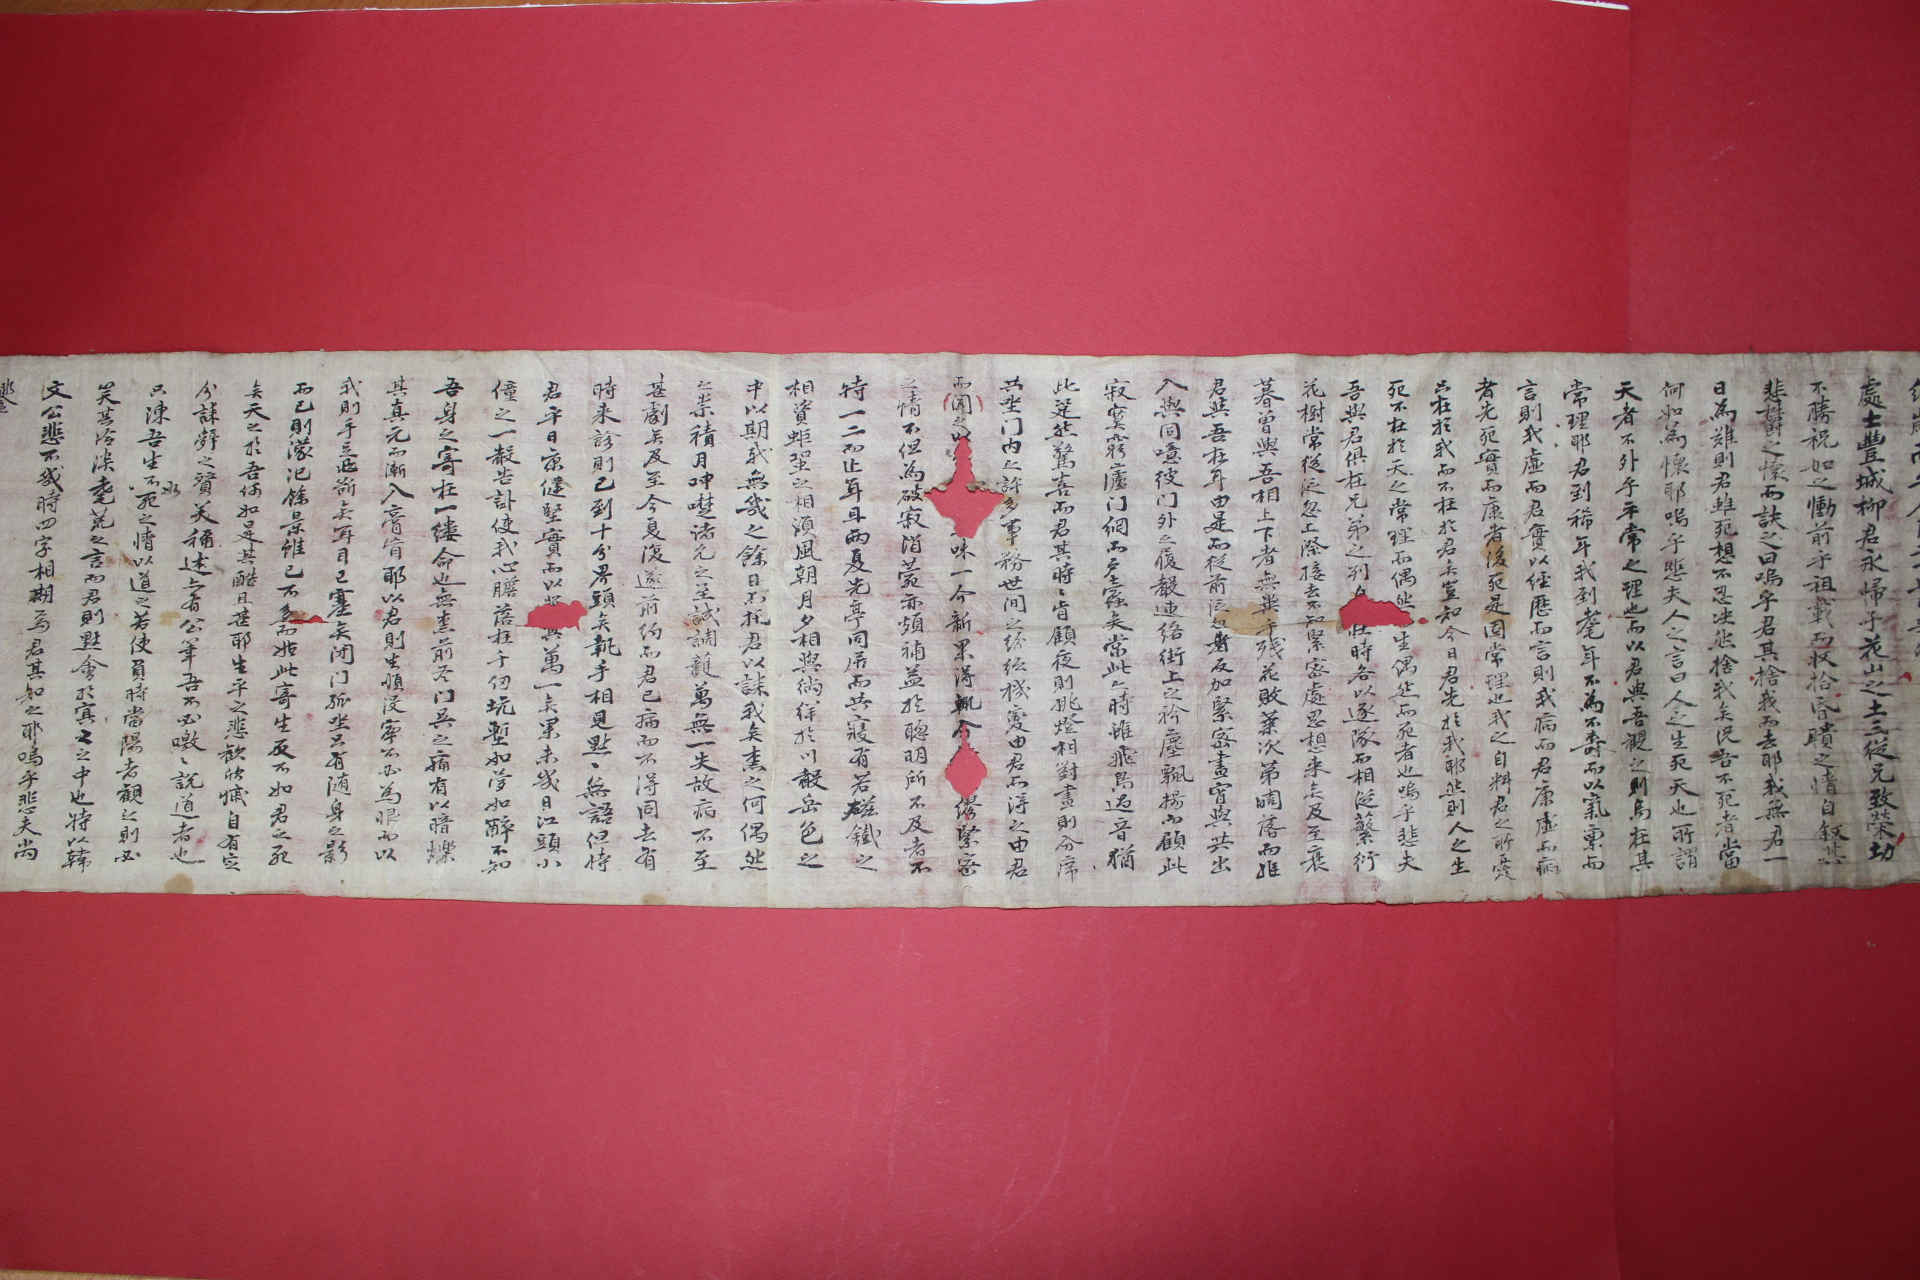 處士豐城柳君永歸于花山之土三從兄致榮功
不勝祝如之慟前乎祖載而收拾昏聵之情自叙其
悲鬱之懷而訣之曰嗚乎君其捨我而去耶我無君一
日為難則君雖死想不忍決然捨我矣況吾不死者當
何如為懷耶嗚乎悲夫人之言曰人之生死天也所謂
天者不外乎平常之理也而以君與吾觀之則烏在其
常理耶君到稀年我到耄年不為不壽而以氣稟而
言則我虛而君實以經歷而言則我病而君康虛而病
者先死實而康者後死是固常理也我之自料君之所憂
亶在於我而不在於君矣豈知今日君先於我耶然則人之生
死不在於天之常理而偶然 生偶然而死者也嗚乎悲夫
吾與君俱在兄弟之列 壯時各以遂隊而相從蘩衍
花樹常從泛忽上際接去不知緊密處思想來矣及至衰
暮曾與吾相上下者無與乎殘花敗葉次第凋落而惟
君與吾在耳由是而從前泛忽者反加緊密晝宵與共出
入與同噫彼門外之履聲連絡街上之衿塵飄揚而顧此
寂寞窮廬門網而戶蛩矣當此之時雖飛鳥過音猶
此跫然驚喜而君其時時肯顧夜則挑燈相對晝則分席
共坐門內之許多事務世間之紛紜機變由君而得之由君
而聞之以 味一介新果得輒令 僚緊密
之情不但為破寂消蒙亦頗補益於聰明所不及者不
特一二而止耳且兩夏先亭同居而共寢有若磁鐵之
相資蚷蛩之相須風朝月夕相與徜徉於川聲岳色之
中以期我無幾之餘日而托君以誄我矣柰之何偶然
之祟積月呻楚諸兒之至誠調護萬無一失故病不至
甚劇矣及至今夏復遵前約而君已病而不得同去有
時來診則已到十分界頭矣執手相見默默無語但恃
君平日康健堅實而以 與萬一矣果未幾日江頭小
僮之一聲告訃使我心膽落在千仞坑塹如夢如醉不知
吾身之寄在一縷命也無柰前冬門吳之痛有以暗爍
其真元而漸入膏肓耶以君則生順沒寧不必為恨而以
我則手足斷矣耳目已塞矣閉門孤坐只有隨身之影
而已則濛汜餘景雖已不多而始此寄生反不如君之死
矣天之於吾何如是其酷且甚耶生平之悲歡欣慽自有定
分誄辭之贊美稱述亦有公筆吾不必噭噭說道者也
只陳吾生不死之情以道之若使員時當陽者觀之則必
笑其冷淡耄荒之言而君則默會於冥冥之中也特以韓
文公悲不幾時四字相期為君其知之耶嗚乎悲夫尚
饗